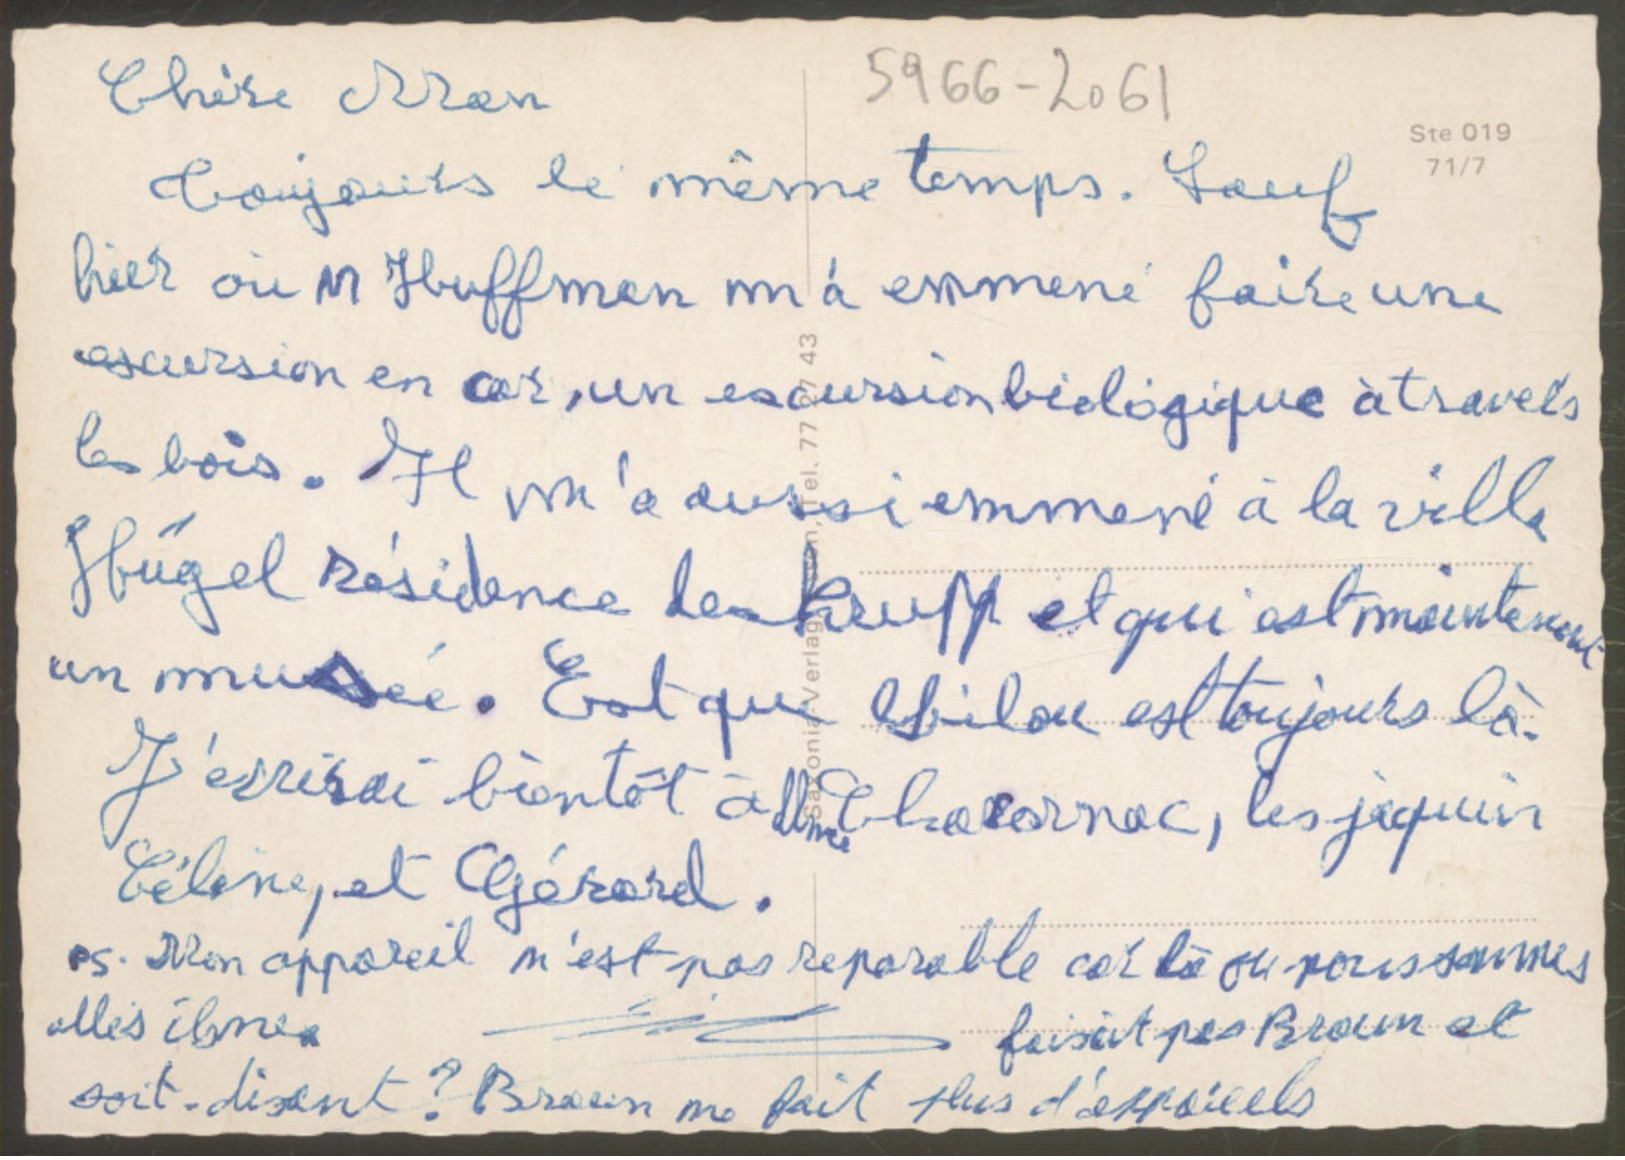 Chère Man
5966-2061
Ste 019
71/7
Toujours le même temps. Sauf
hier où M Huffman m'a emmené faire une
escursion en car, un escursion biologique à travers
les bois. Il m'a aussi emmené à la villa
Hügel résidence des Krupp et qui est maintenant
un musée. Est que est toujours là.
J'ecrirai bientôt à Mme Chacornac, les jaquin
Céline, et Gérard.
Ps. Mon appareil n'est pas reparable car là ou nous sommes
allés il ne
faisait pas Braun et
soit-disant? Braun ne fait plus d'appareils
Saxonia-Verlag, Tel. 77 27 43